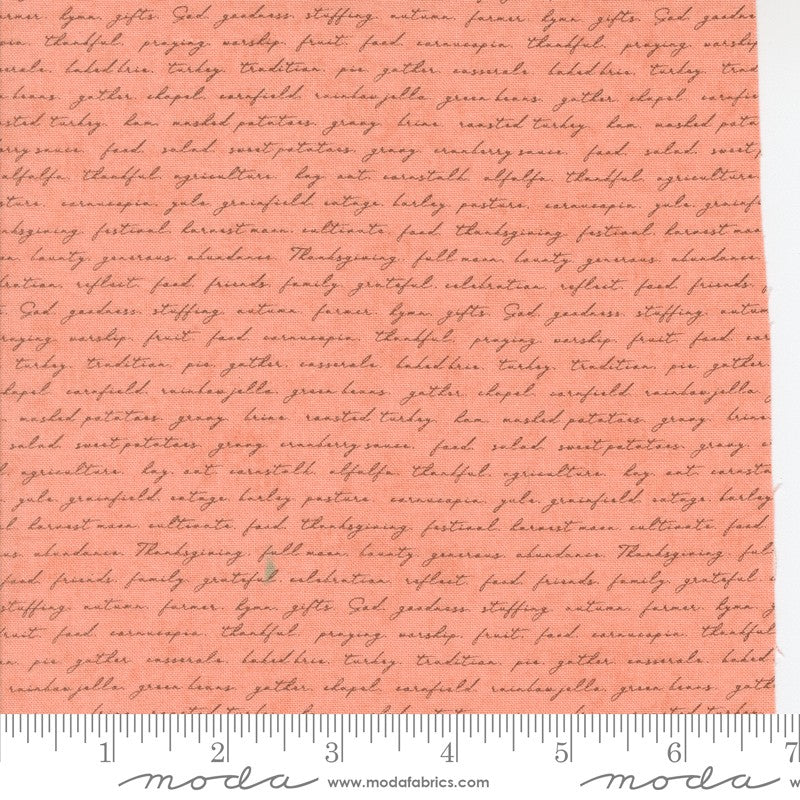 hymn. gifts. God. goodness. stuffing. autumn. farmer. hymn. gifts. God. goodne
thankful. praying. worship. fruit. food. cornucopia. thankful. praying. worship
baked brie. turkey. tradition. pie. gather. casserole. baked brie. turkey. trad
beans. gather. chapel. cornfield. rainbow jello. green beans. gather. chapel. cornfie
sted turkey. ham. mashed potatoes. gravy. brine. roasted turkey. ham. mashed pota
rry sauce. food. salad. sweet potatoes. gravy. cranberry sauce. food. salad. sweet p
alfalfa. thankful. agriculture. hay. oat. cornstalk. alfalfa. thankful. agriculture.
cornucopia. yule. grainfield. cotage. barley. pasture. cornucopia. yule. grainfi
festival. harvest moon. cultivate. food. thanksgiving. festival. harvest moo
bounty. generous. abundance. Thanksgiving. full moon. bounty. generous. abundance.
bration. reflect. food. friends. family. grateful. celebration. reflect. food. friends.
God. goodness. stuffing. autumn. farmer. hymn. gifts. God. goodness. stuffing. autum
raying. worship. fruit. food. cornucopia. thankful. praying. worship. fruit. food. cor
turkey. tradition. pie. gather. casserole. baked brie. turkey. tradition. pie. gather.
chapel. cornfield. rainbow jello. green beans. gather. chapel. cornfield. rainbow jello.
mashed potatoes. gravy. brine. roasted turkey. ham. mashed potatoes. gravy. brine.
salad. sweet potatoes. gravy. cranberry sauce. food. salad. sweet potatoes. gravy. c
agriculture. hay. oat. cornstalk. alfalfa. thankful. agriculture. hay. oat. cornsta
yule. grainfield. cotage. barley. pasture. cornucopia. yule. grainfield. cotage. barley
harvest moon. cultivate. food. thanksgiving. festival. harvest moon. cultivate. food
abundance. Thanksgiving. full moon. bounty. generous. abundance. Thanksgiving. ful
food. friends. family. grateful. celebration. reflect. food. friends. family. grateful.
stuffing. autumn. farmer. hymn. gifts. God. goodness. stuffing. autumn. farmer. hymn.
fruit. food. cornucopia. thankful. praying. worship. fruit. food. cornucopia. thankful
pie. gather. casserole. baked brie. turkey. tradition. pie. gather. casserole. baked
rainbow jello. green beans. gather. chapel. cornfield. rainbow jello. green beans. gath
1 2 3 4 5 6 7
moda www.modafabrics.com moda w